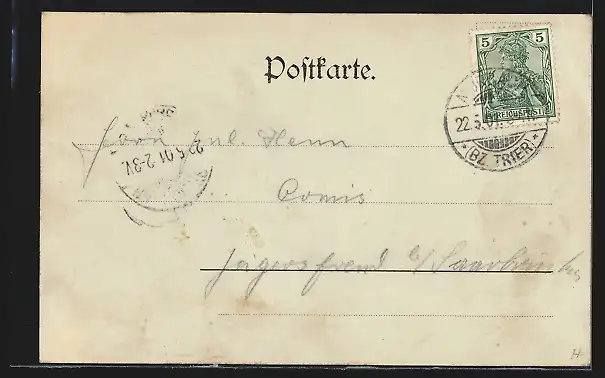 Postkarte.
5
REICHSPOST
22.5.01.
* (BZ. TRIER) *
22.5.01.2-3V.
Herrn Eul. Henn
Comis
Jägersfreud b/Saarbrücken
H